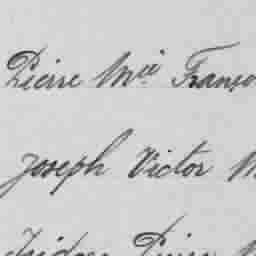 Pierre Mie Franso
Joseph Victor M
Isidore Pierre